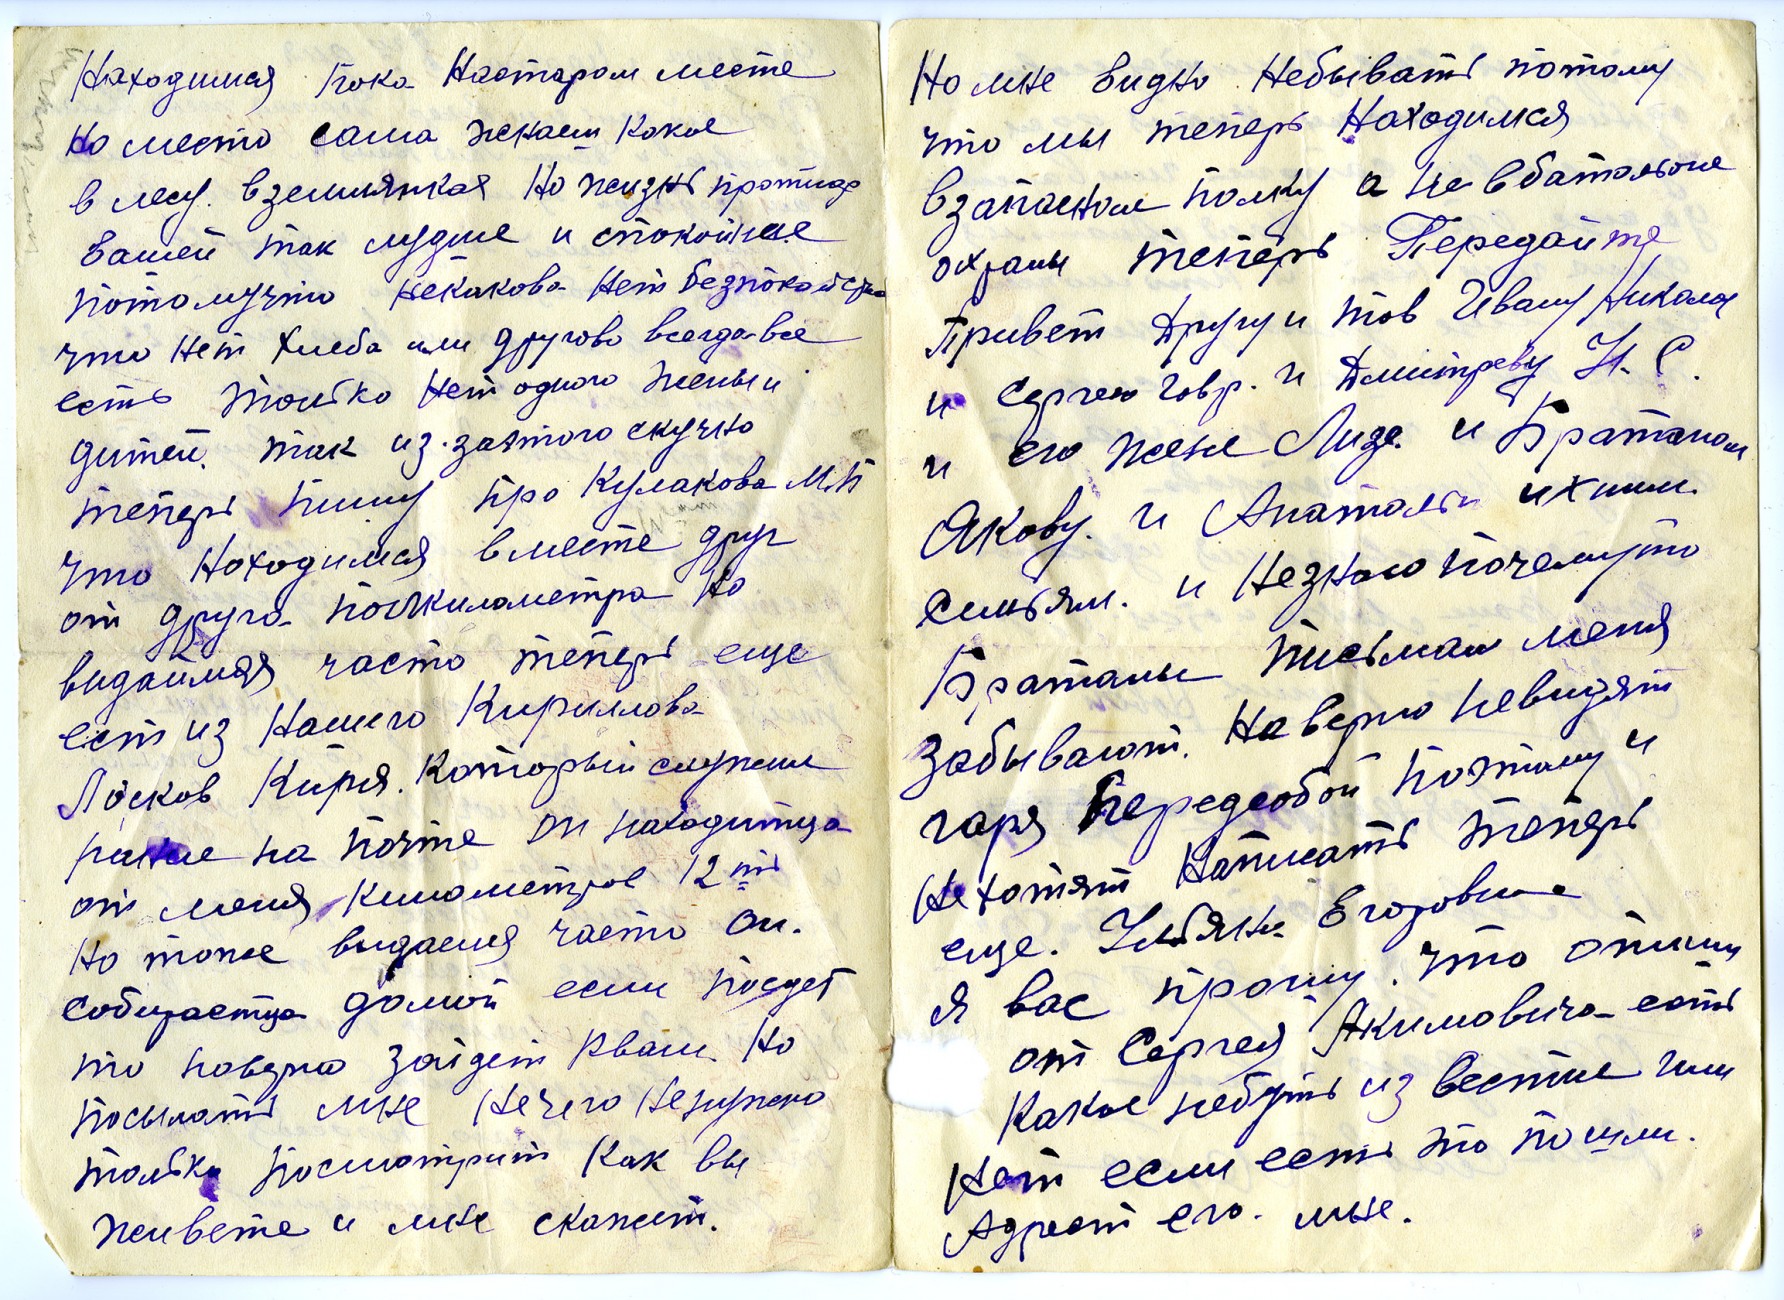 Находимся пока Настаром месте
Но место сама жнаеш Какое
в лесу. вземлянках Но жизнь против
вашей так лудше и спокойнее
потомучто Некакова Нет безпокойства
что Нет хлеба или другово всегда все
есть Только Нет одного жены и
дитей. так из.заэтого скучно
теперь пишу про Кулакова М.П
что Находимся вместе друг
от друга полкилометра Но
видаимся часто теперь еще
ест из Нашего Кириллова
Лосков Киря. Который служил
раньше на почте он находитца
от меня километров 12ть
Но тоже видаемся часто он.
собираетца домой если поедет
то наверно зайдет Квам. Но
посылать мне Нечего Ненужно
только посмотрит Как вы
живете и мне скажет.
Но мне видно Небывать потому
что мы теперь Находимся
взапасном полку а не вбатальоне
охраны теперь Передайте
Привет Другу и тов Ивану Никола
и Сергею Гавр. и Дмитреву И. С.
и его жене Лизе. и Братаном
Якову. и Анатолью ихним
Семьям. и Незнаю почемуто
Братаны письмам меня
забывают. Наверно Невидят
гаря Передсобой поэтому и
Нехотят Написать теперь
еще. Ульяна Егоровна
я вас прошу. что опиши
от Сергея Акимовича есть
Какое небуть из вестие или
Нет если есть то пошли.
Адрест его. мне.